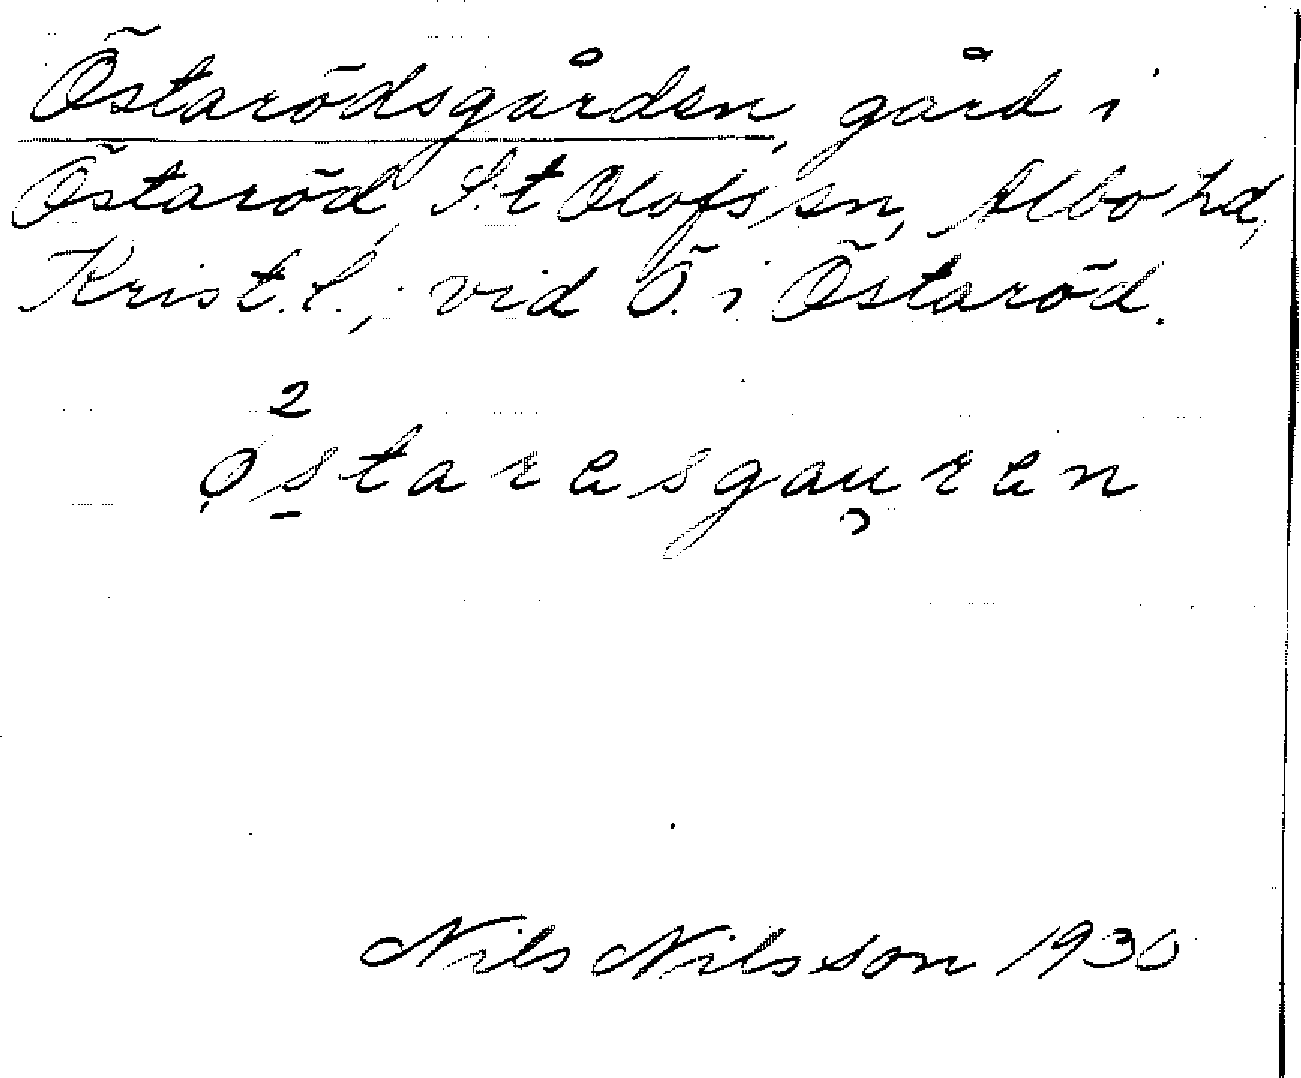 Östarödsgården, gård i
Östaröd, S:t Olofs sn, Albo hd,
Krist. l., vid Ö. i Östaröd.
2
østaresgau̯ren
Nils Nilsson 1930